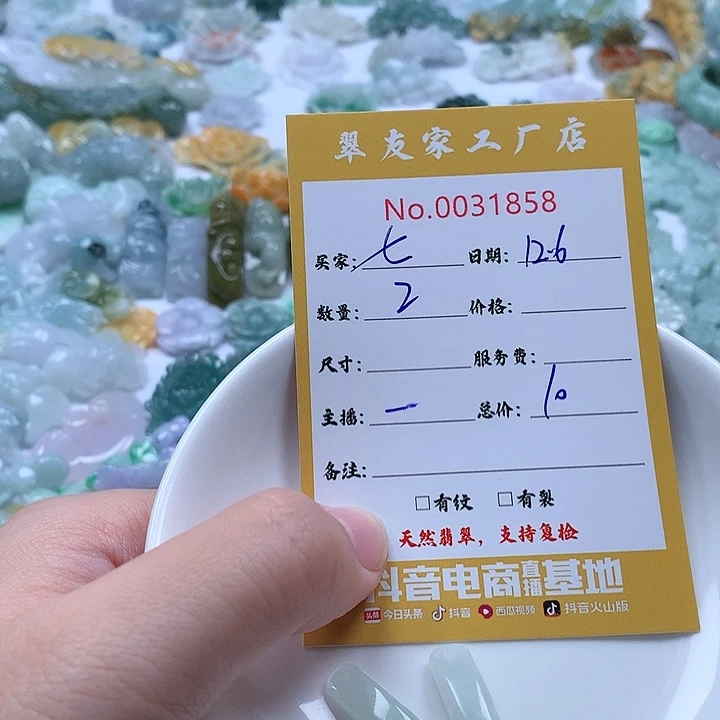 翠友家工厂店
No.0031858
买家: 七 日期: 12.6
数量: 2 价格:
尺寸: 服务费:
主播: 一 总价: 10
备注:
□有纹 □有裂
天然翡翠，支持复检
抖音电商直播基地
头条 今日头条 抖音 西瓜视频 抖音火山版